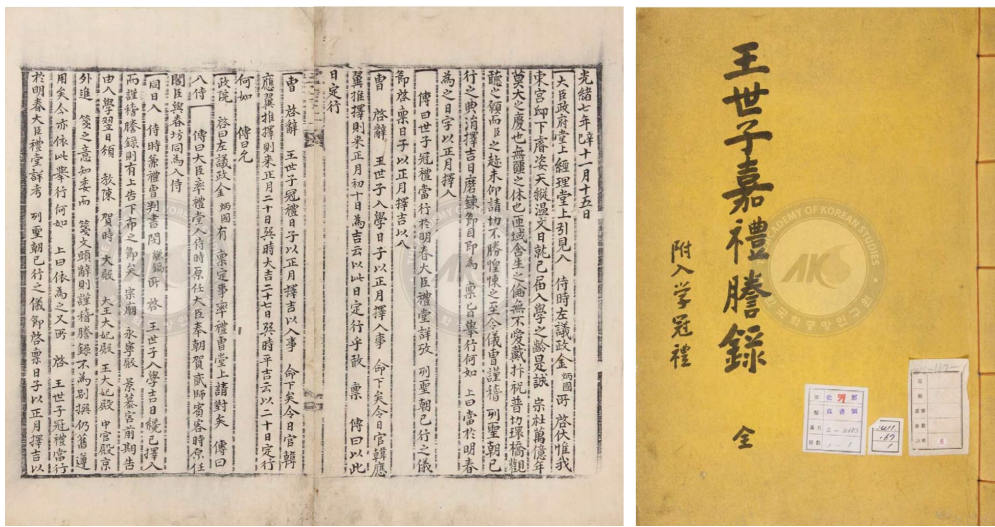 光緖七年辛十一月十五日
大臣政府堂上經理堂上引見入 侍時左議政金炳國所 啓伏惟我
東宮邸下睿姿天縱溫文日就已屆入學之齡是誠 宗社萬億年
莫大之慶也無疆之休也匝域含生之倫無不愛戴抃祝普切環橋觀
聽之願而臣之趁未仰請切不勝惶悚之至令儀曹謹稽 列聖朝已
行之典涓擇吉日磨鍊節目卽爲 稟旨擧行何如 上曰當於明春
爲之日字以正月擇入
傳曰世子冠禮當行於明春大臣禮堂詳攷 列聖朝已行之儀
節啓稟日子以正月擇吉以入
曹 啓辭 王世子入學日子以正月擇入事 命下矣令日官韓應
翼推擇則來正月初十日爲吉云以此日定行乎敢 稟 傳曰以此
日定行
曹 啓辭 王世子冠禮日子以正月擇吉以入事 命下矣令日官韓
應翼推擇則來正月二十日巽時大吉二十七日巽時平吉云以二十日定行
何如 傳曰允
政院 啓曰左議政金炳國有 稟定事率禮曹堂上請對矣 傳曰
入侍 傳曰大臣率禮堂入侍時原任大臣奉朝賀貳師賓客時原任
閣臣與春坊同爲入侍
同日入 侍時兼禮曹判書閔 鎬所 啓 王世子入學吉日纔已擇入
而謹稽謄錄則有上告下布之節矣 宗廟 永寧殿 景慕宮前期告
由入學翌日頒 敎陳 賀時 大殿 大王大妃殿 王大妃殿 中宮殿京
外進 箋之意知委而 箋文頭辭則謹稽謄錄不爲別撰仍舊遵
用矣今亦依此擧行何如 上曰依爲之又所 啓 王世子冠禮當行
於明春大臣禮堂詳考 列聖朝已行之儀節啓稟日子以正月擇吉以
王世子嘉禮謄錄 全
附入学冠禮
ACADEMY OF KOREAN STUDIES
AK